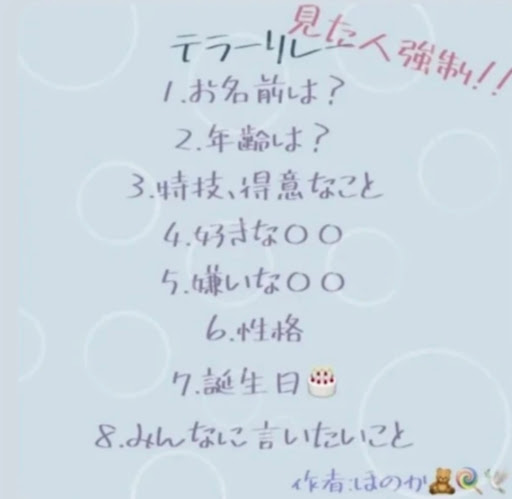 テラーリレー
見た人強制!!
1.お名前は?
2.年齢は?
3.特技、得意なこと
4.好きな○○
5.嫌いな○○
6.性格
7.誕生日🎂
8.みんなに言いたいこと
作者:ほのか🧸🍭🕊